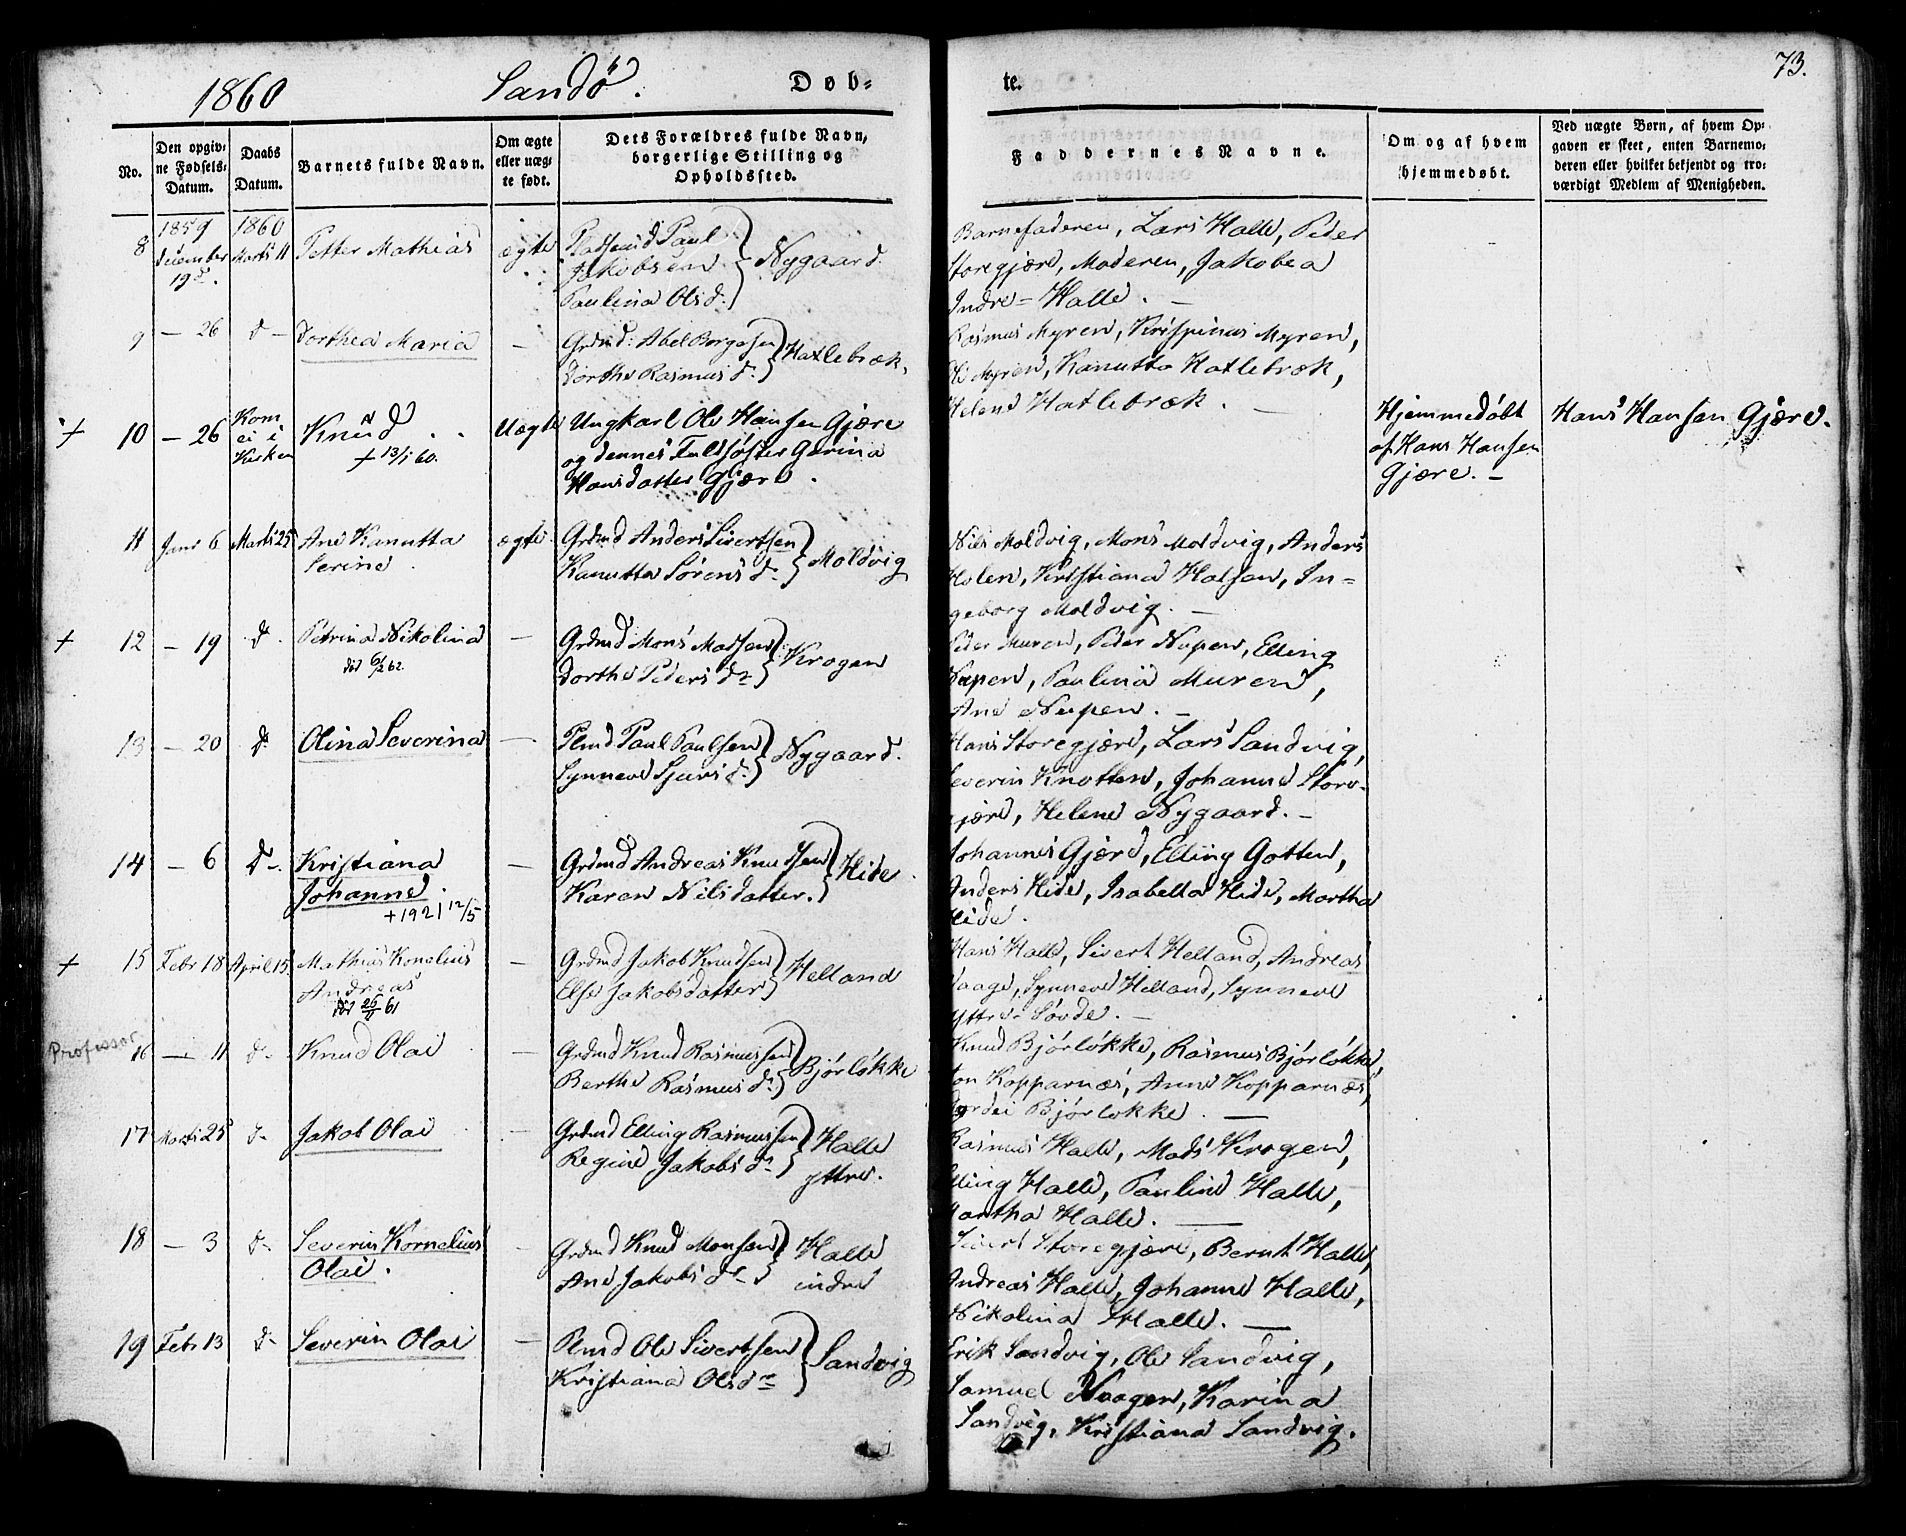 1860 Sandø. Døb-
te. 73.
No.
Den opgiv-
ne Fødsels-
Datum.
Daabs
Datum.
Barnets fulde Navn.
Om ægte
eller uæg-
te født.
Dets Forældres fulde Navn,
borgerlige Stilling og
Opholdssted.
Faddernes Navne.
Om og af hvem
hjemmedøbt.
Ved uægte Børn, af hvem Op-
gaven er skeet, enten Barnemo-
deren eller hvilket bekjendt og tro-
værdigt Medlem af Menigheden.
8
1859
December
19d.
1860
Marts 11
Petter Mathias
ægte
Pladsmd Paul
Jakobsen
Paulina Olsd.
Nygaard.
Barnefaderen, Lars Halle, Peder
Storegjære, Moderen, Jakobea
Indre-Halle. —
9
— 26
d —
Dorthea Maria
—
Grdmd: Abel Borgesen
Dorthe Rasmusd.
Hatlebræk,
Rasmus Myren, Krispinus Myren,
Ole Myren, Kanutta Hatlebræk,
Helene Hatlebræk. —
+ 10
— 26
Kom
ei i
Kirken
Knud
+ 13/1 60.
Uægte
Ungkarl Ole Hansen Gjære
og dennes Fuldsøster Gurina
Hansdatter Gjære.
Hjemmedøbt
af Hans Hansen
Gjære. —
Hans Hansen Gjære.
11
Janr 6
Marts 25
Ane Kanutta
Serine.
ægte
Grdmd Anders Sivertsen
Kanutta Sørensd.
Moldvig
Nils Moldvig, Mons Moldvig, Anders
Holen, Kristiana Holsen, In-
geborg Moldvig. —
+ 12
— 19
d.
Petrina Nikolina
død 6/2 62.
—
Grdmd Mons Madsen
Dorthe Pedersdr
Krogen
Peder Muren, Peder Nupen, Elling
Nupen, Paulina Muren,
Ane Nupen. —
13
— 20
d.
Olina Severina
—
Plmd Paul Paulsen
Synneve Sjursd.
Nygaard.
Hans Storegjære, Lars Sandvig,
Severin Knotten, Johanne Store-
gjære, Helene Nygaard. —
14
— 6
D —
Kristiana
Johanne.
+ 1921 12/5
—
Grdmd Andreas Knudsen
Karen Nilsdatter.
Hide.
Johannes Gjære, Elling Gotten,
Anders Hide, Isabella Hide, Martha
Hide.
+ 15
Febr 18
April 15
Mathias Konelius
Andreas
død 26/11 61
—
Grdmd Jakob Knudsen
Else Jakobsdatter
Helland
Hans Halle, Sivert Helland, Andreas
Vaage, Synneve Helland, Synneve
Yttre-Søvde. —
Professor
16
— 11
d —
Knud Olai
—
Grdmd Knud Rasmussen
Berthe Rasmusd.
Bjørløkke
Knud Bjørløkke, Rasmus Bjørløkke,
Jon Kopparnæs, Anne Kopparnæs,
Bjørløkke. —
17
Marts 25
d —
Jakob Olai
—
Grdmd Elling Rasmussen
Regine Jakobsdr
Halle
yttre.
Rasmus Halle, Mads Krogen,
Elling Halle, Pauline Halle,
Martha Halle. —
18
— 3
d —
Severin Kornelius
Olai.
—
Grdmd Knud Monsen
Ane Jakobsdr
Halle
indre
Sivert Storegjære, Bernt Halle,
Andreas Halle, Johanne Halle,
Nikolina Halle. —
19
Febr 13
d —
Severin Olai
—
Plmd Ole Sivertsen
Kristiana Olsdr
Sandvig
Erik Sandvig, Ole Sandvig,
Samuel Haagen, Karina
Sandvig, Kristiana Sandvig.